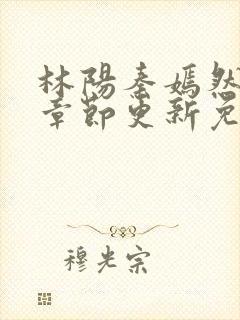 林陽秦嫣然
章節更新免
穆光宗